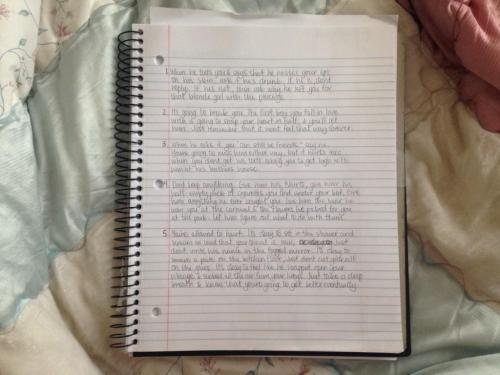 1. When he texts you & says that he misses your lips
on his skin, ask if he's drunk. If he is, dont
reply. If he's not, then ask why he left you for
that blonde girl with the piercings.
2. It's going to break you. The first boy you fall in love
with is going to snap your heart in half, & you'll let
him. Just remember that it wont feel that way forever.
3. When he asks if you can still be friends, say no.
You're going to miss him either way, but it hurts less
when you dont get his texts asking you to get high with
him at his brothers house.
4. Dont keep anything. Give him his tshirts, give him his
half empty pack of cigarettes you find under your bed, give
him anything he ever bought you. Give him the bear he
won you at the carnival & the flowers he picked for you
at the park. Let him figure out what to do with them.
5. You're allowed to hurt. It's okay to sit in the shower and
scream so loud that your throat is raw, but
dont write his name in the fogged mirror. It's okay to
smash a plate on the kitchen floor, but dont cut yourself
on the glass. It's okay to feel like he ripped open your
ribcage & sucked all the air from your lungs. Just take a deep
breath & know that you're going to get better eventually.